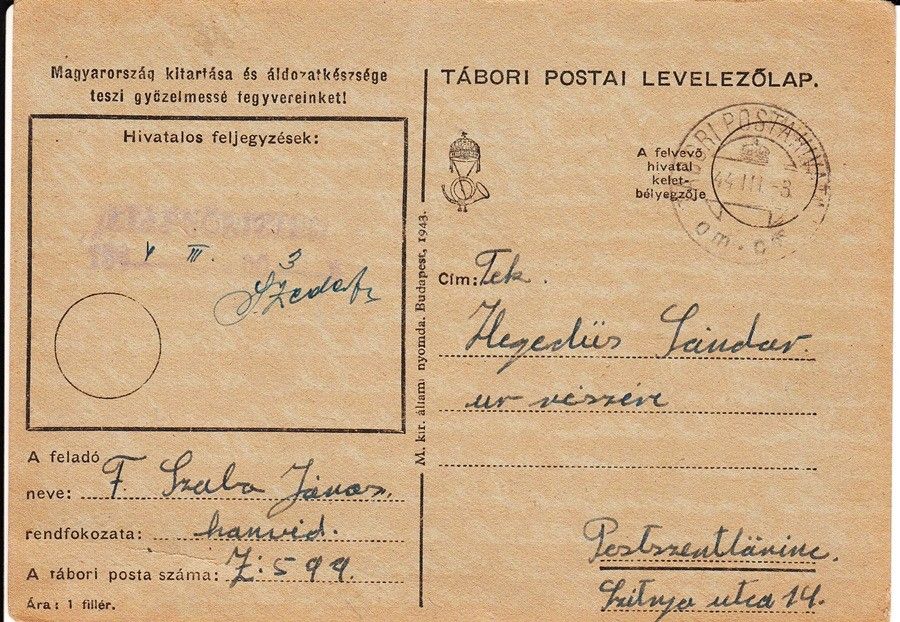 Magyarország kitartása és áldozatkészsége
teszi győzelmessé fegyvereinket!
Hivatalos feljegyzések:
III. 3
A feladó
neve: F. Szabo János.
rendfokozata: honvéd.
A tábori posta száma: Z: 599.
Ára: 1 fillér.
M. kir. állami nyomda. Budapest, 1943.
TÁBORI POSTAI LEVELEZŐLAP.
A felvevő
hivatal
kelet-
bélyegzője
44 III -3
Cím: Tek.
Hegedüs Sándor.
ur részére
Pestszentlőrinc.
utca 14.